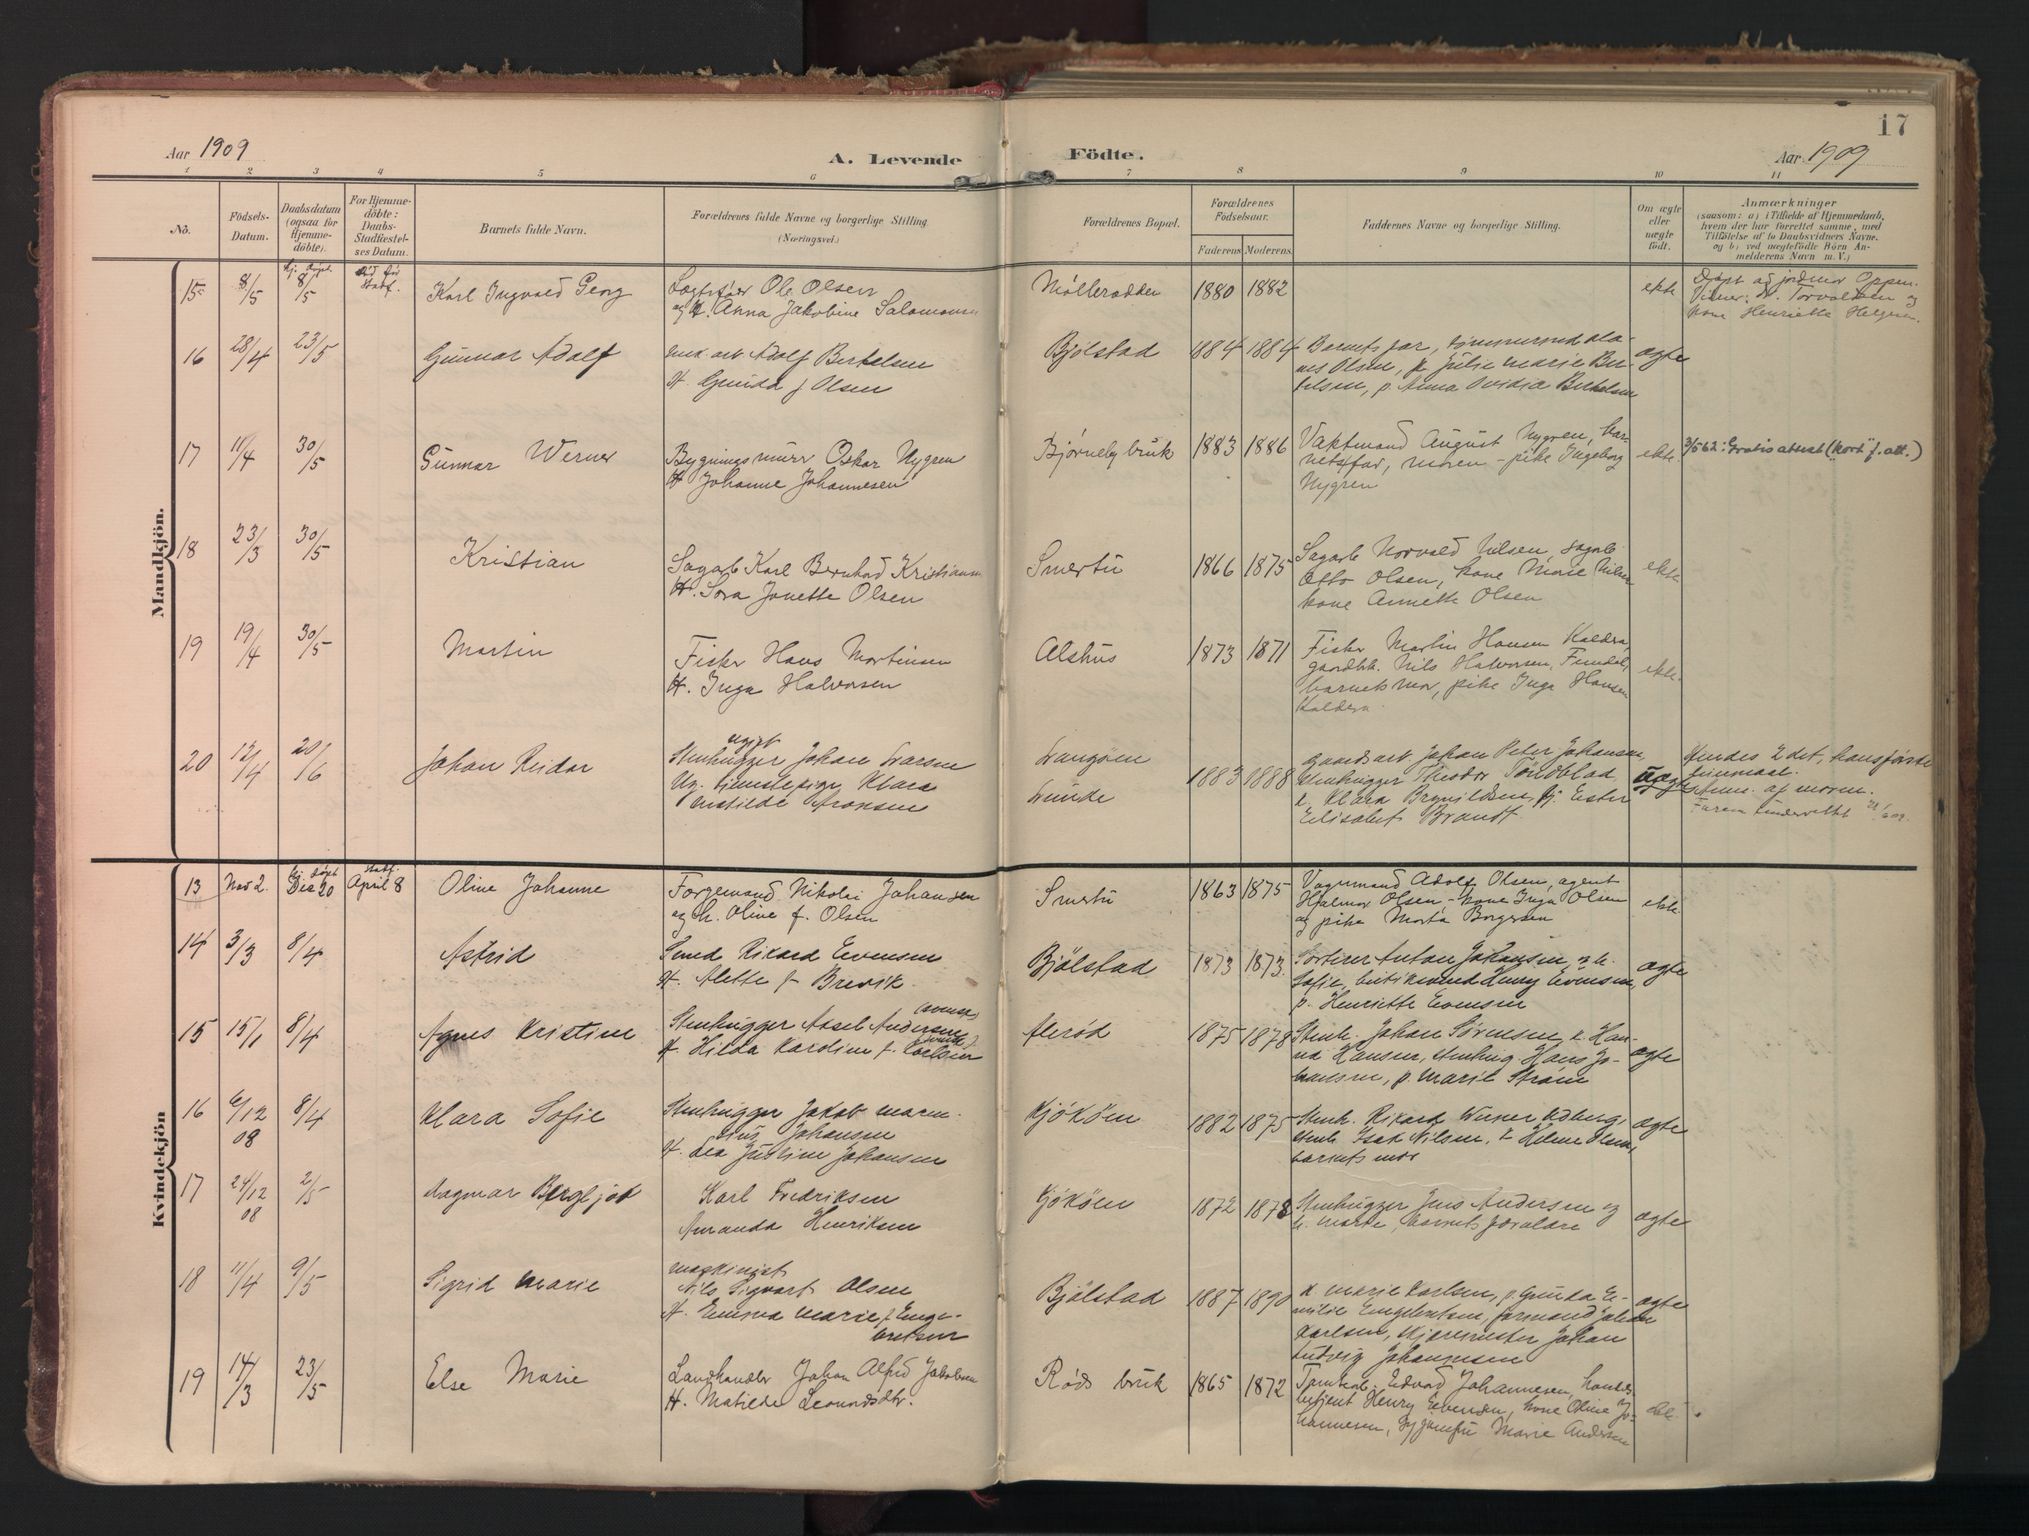 17
Aar 1909
A. Levende
Födte.
Aar 1909
1 2 3 4 5 6 7 8 9 10 11
No.
Födsels-Datum.
Daabsdatum (ogsaa for Hjemmedöbte).
For Hjemmedöbte: Daabs-Stadfæstelses Datum.
Barnets fulde Navn.
Forældrenes fulde Navne og borgerlige Stilling.
(Næringsvei.)
Forældrenes Bopæl.
Forældrenes Födselsaar.
Faderens Moderens
Faddernes Navne og borgerlige Stilling.
Om ægte eller uægte födt.
Anmærkninger
(saasom: a) i Tilfælde af Hjemmedaab,
hvem der har forrettet samme, med
Tilföielse af to Daabsvidners Navne.
og b) ved uægtefödte Börn An-
melderens Navn m. V.)
Mandkjön.
15 8/5 8/5 Karl Ingvald Georg
Ole Olsen
og H. Anna Jakobine Salomonsen
Møllerodden 1880 1882
ekte
Døpt af jordmor Oppen.
Torvaldsen og
kone Henriette
16 28/4 23/5 Gunnar Adolf
Adolf Bertelsen
H. Gunda f Olsen
Bjølstad 1884 1884
Barnets far,
Olsen, p Julie Marie Ber-
telsen, p. Anna Ovidia Bertelsen
ægte
17 11/4 30/5 Gunnar Werner
Bygningsmurer Oskar Nygren
H. Johanne Johannesen
Bjørneby bruk 1883 1886
Vaktmand August Nygren, bar-
netsfar, moren - pike Ingeborg
Nygren
ekte
3/5 62: Gratis attest (kort f. att.)
18 23/3 30/5 Kristian
Sagarb Karl Bernhard Kristiansen
H. Sova Jonette Olsen
Smertu 1866 1875
Sagarb Norvald Nilsen, sagarb.
Otto Olsen, kone Marie Nilsen
kone Annette Olsen
ekte
19 19/4 30/5 Martin
Fisker Hans Martinsen
H. Inga Halvorsen
Alshus 1873 1871
Fisker Martin Hansen Kaldera,
gaardbr. Nils Halvorsen,
barnets mor, pike Inga Hansen
Kaldera.
ekte.
20 12/4 20/6 Johan Reidar
ugift
Stenhugger Johan Larsen
Ug. tjenestepige Klara
Aronsen
Langøen
Lunde
1883 1888
Gaardsarb. Johan Peter Johansen,
Stenhugger Theodor Tøndblad,
k. Klara Brynildsen, Ester
Elisabet Brandt.
uægte
Hendes 2det, hans første
leiermaal.
Anm. af moren.
Faren underrettet
Kvindekjön
13 Nov 2. Dec 20 April 8 Oline Johanne
Forgemand Nikolai Johansen
og H. Oline f. Olsen
Smertu 1863 1875
Adolf Olsen, agent
Hjalmar Olsen, kone Inga Olsen
og pike Marta Borgersen
ekte.
14 3/3 8/4 Astrid
Smed Rikard Evensen
H. Alette f Brevik.
Bjølstad 1873 1873.
Sortirer Anton Johansen, og h.
Sofie, Henry Evensen,
p. Henriette Evensen
ægte
15 15/1 8/4 Agnes Kristine
Stenhugger Axsel Andersen
H. Hilda Karoline f. Carlsen
Alerød 1875 1878
Stenh. Johan Sørensen, k Han-
na Hansen, stenhug. Hans Jo-
hansen, p. Marie Strøm
ægte
16 6/12 08 8/4 Klara Sofie
Stenhugger Jakob
Johansen
H. Lea Justine Johansen
Kjøkøen 1882 1875
Stenh. Rikard Werner
stenh Isak Nilsen, k Helene Olsen,
barnets mor
ægte
17 24/12 08 2/5 Dagmar Bergljot
Karl Fredriksen
Amanda Henriksen
Kjøkøen 1872 1878
Stenhugger Jens Andersen og
h. Marte, barnets forældre
ægte
18 11/4 9/5 Sigrid Marie
maskinist
Nils Sigvart Olsen
H. Emma Marie f Enge-
bretsen
Bjølstad 1887 1890
k Marie Karlsen, p. Gunda E-
milie Engebretsen, formand Johan
Karlsen, skjæremester Johan
Ludvig Johannesen
ægte
19 14/3 23/5 Else Marie
Landhandler Johan Alfred Jakobsen
H. Matilde Leonardsdtr.
Røds bruk 1865 1872
Edvard Johannesen, handels-
betjent Henry Evensen, kone Oline Jo-
hannesen, Marie Andersen
ekte.